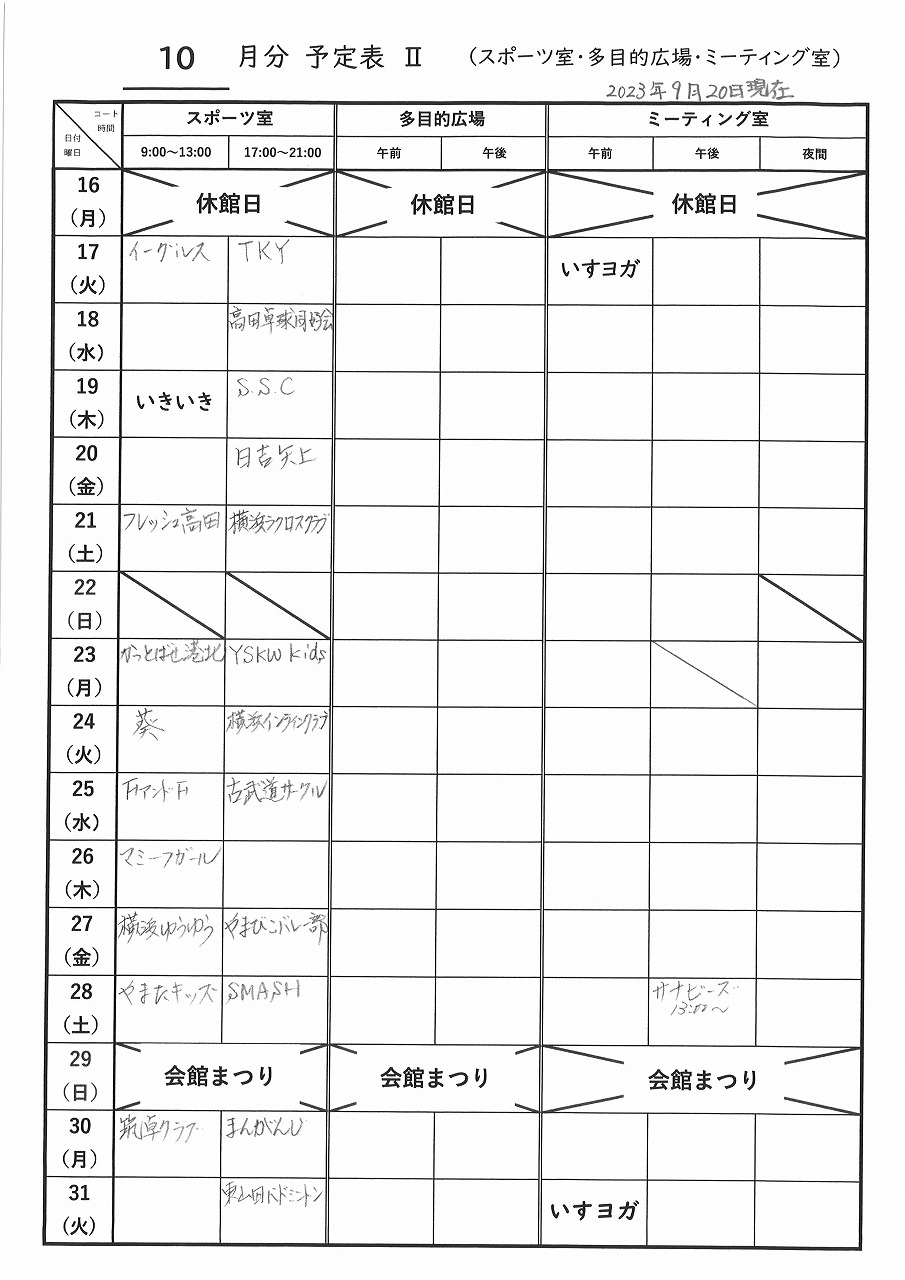 10 月分 予定表 Ⅱ （スポーツ室・多目的広場・ミーティング室）
2023年9月20日現在
コート
時間
日付
曜日
スポーツ室 多目的広場 ミーティング室
9:00～13:00 17:00～21:00 午前 午後 午前 午後 夜間
16
（月） 休館日 休館日 休館日
17
（火） イーグルス TKY いすヨガ
18
（水） 高田卓球同好会
19
（木） いきいき S.S.C
20
（金） 日吉矢上
21
（土） フレッシュ高田 横浜ラクロスクラブ
22
（日）
23
（月） かっとばせ港北 YSKW kids
24
（火） 葵 横浜インラインクラブ
25
（水） FアンドF 古武道サークル
26
（木） マミーフガール
27
（金） 横浜ゆうゆう やまびこバレー部
28
（土） やまたキッズ SMASH サナビーズ
13:00～
29
（日） 会館まつり 会館まつり 会館まつり
30
（月） 筑卓クラブ まんがんじ
31
（火） 東山田バドミントン いすヨガ